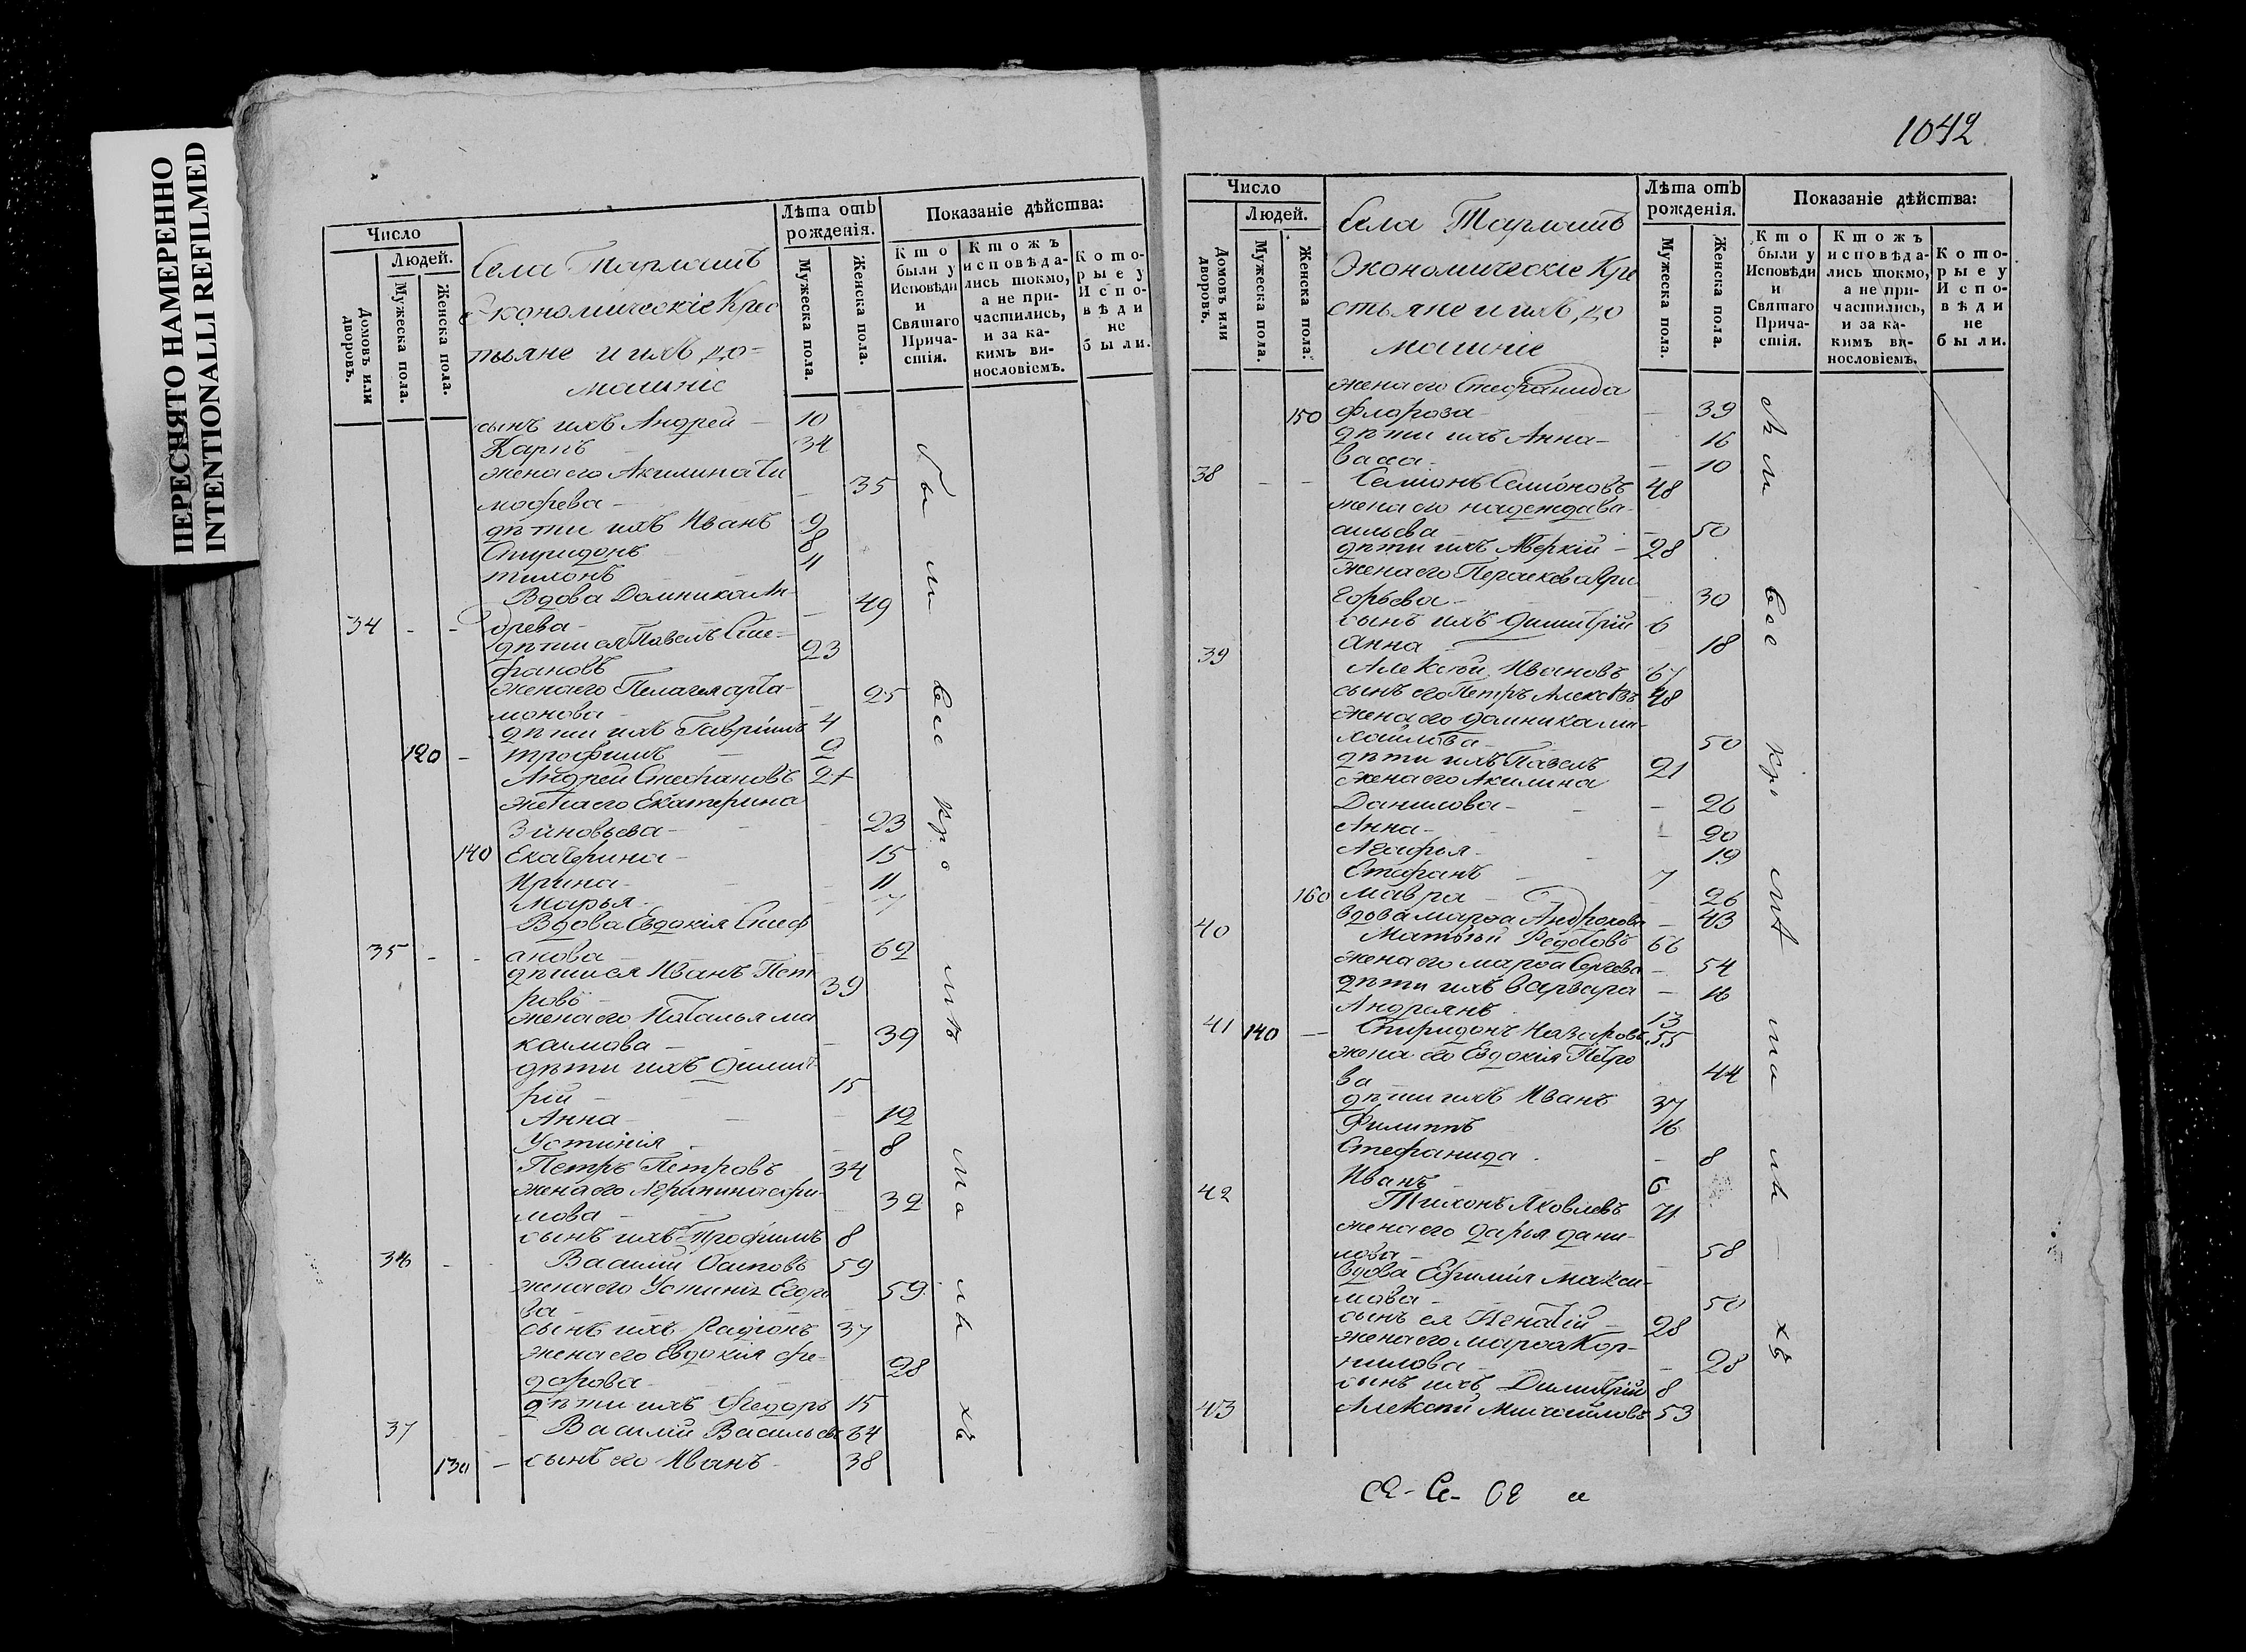 ПЕРЕСНЯТО НАМЕРЕННО
INTENTIONALLI REFILMED
Число
Людей.
Домовъ или дворовъ.
Мужеска пола.
Женска пола.
Села Тарлашъ
Экономическіе Крес
тьяне и ихъ до=
машніе
Лѣта отъ рожденія.
Мужеска пола.
Женска пола.
Показаніе дѣйства:
Кто были у Исповѣди и Святаго Причастія.
Ктожъ исповѣдались токмо, а не причастились, и за какимъ винословіемъ.
Которые у Исповѣди не были.
сынъ ихъ Андрей 10
Карпъ 34
жена его Акилина Ти
мофева 35
дѣти ихъ Иванъ 9
Спиридонъ 8
тихонъ 11
Вдова Домника Ан-
34 - - древа 49
дѣти ея Павелъ Сте-
фановъ 23
жена его Пелагея арта-
монова 25
дѣти ихъ Гавріилъ 4
120 - трофимъ 2
Андрей Стефановъ
жена его Екатерина
Зиновьева 23
140 Екатерина 15
Ирина 11
Марья 7
Вдова Евдокія Стеф
35 - - анова 62
дѣти ея Иванъ Пет
ровъ 39
жена его Наталья ма
каимова 39
дѣти ихъ Димит
рій 15
Анна 12
Устинія 8
Петръ Петровъ 34
жена его Агрипина афи-
мова 32
сынъ ихъ Трофимъ 8
36 - Василій Осиповъ 59
жена его Устинія Егоро
ва 59
сынъ ихъ Радіонъ 37
жена его Евдокія фе-
дорова 28
дѣти ихъ Федоръ 15
37 - Василій Васильевъ 64
130 - сынъ его Иванъ 38
бы
ли
всс
кро
мѣ
ма
лы
хъ
1042
Число
Людей.
Домовъ или дворовъ.
Мужеска пола.
Женска пола.
Села Тарлашъ
Экономическіе Кре
стьяне и ихъ до
машніе
Лѣта отъ рожденія.
Мужеска пола.
Женска пола.
Показаніе дѣйства:
Кто были у Исповѣди и Святаго Причастія.
Ктожъ исповѣдались токмо, а не причастились, и за какимъ винословіемъ.
Которые у Исповѣди не были.
жена его Стефанида
150 Флорова 39
дѣти ихъ Анна 16
васса 10
38 - - Семионъ Семіоновъ 48
жена его надежда ва-
сильева 50
дѣти ихъ Аверкій 28
жена его Пераскева Гри
горьева 30
сынъ ихъ Димитрій 6
анна 18
39 Алексѣй Ивановъ 67
сынъ его Петръ Алексѣвъ 48
жена его домника ми-
хаилова 50
дѣти ихъ Павелъ 21
жена его Акилина
Данилова 26
Анна 20
Агафья 19
Стефанъ 7
160 мавра 26
вдова марѳа Андронова 43
40 Матвѣй Федотовъ 66
жена его марѳа Сергева 54
дѣти ихъ варвара 16
Андреянъ 13
41 140 - Спиридонъ Назаровъ 55
жена его Евдокія Петро
ва 44
дѣти ихъ Иванъ 37
Филиппъ 16
Стефанида 8
Иванъ 6
42 Тихонъ Яковлевъ 71
жена его Дарья дани-
лова 58
вдова Ефимія макси-
мова 50
сынъ ея Игнатій 28
жена его марѳа Кор-
нилова 28
сынъ ихъ Димитрій 8
43 Алексѣй михаиловъ 53
ли
всс
кро
мѣ
ма
лы
хъ